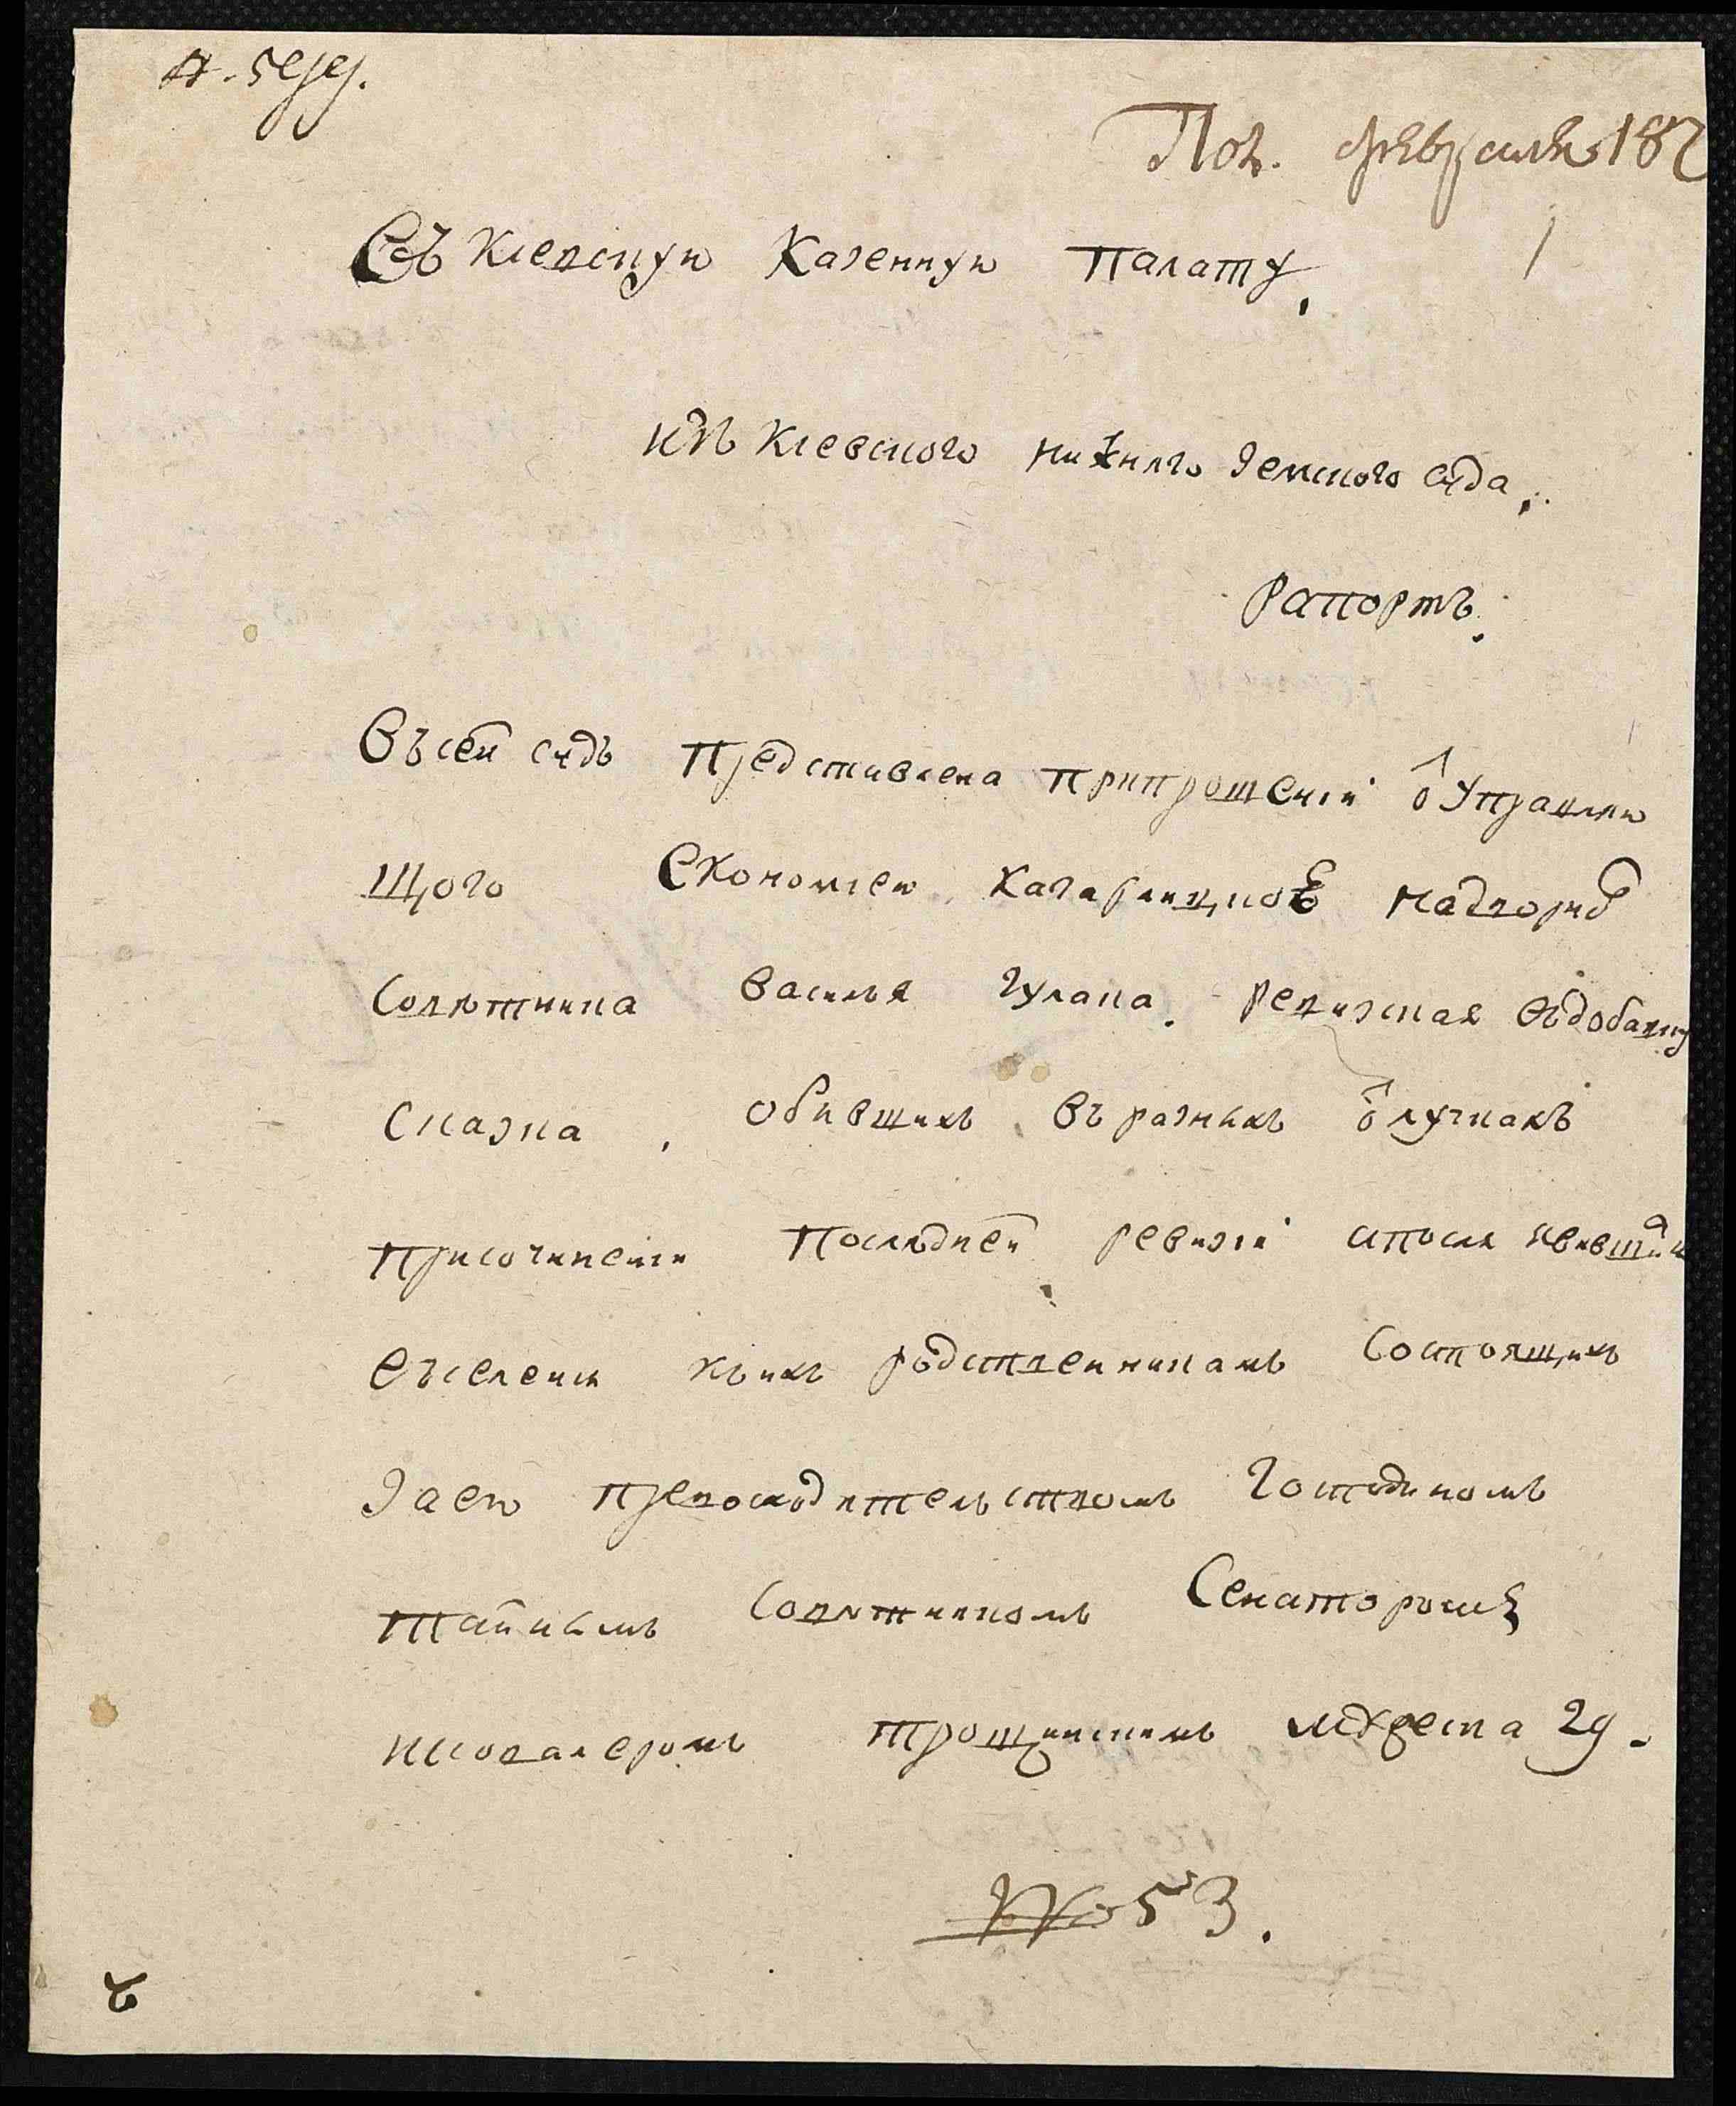 Пол. февраля 182
Въ Киевскую Казенную Палату.
изъ Киевского нижняго Земского суда.
рапортъ.
Въ сей судъ представлена при прошенїи ѿ Управляю
щого Економиею Кагарлицкою надворного
Советника Василья Гулака. ревизская въ добавку
сказка, о бывшихъ въ разныхъ ѿлучкахъ
при сочинении последней ревизїи а после явившихся
въ селения къ ихъ родственникамъ состоящихъ
за его превосходительствомъ Господиномъ
тайнымъ советникомъ Сенаторомъ
и кавалеромъ трощинскимъ
№ 53.